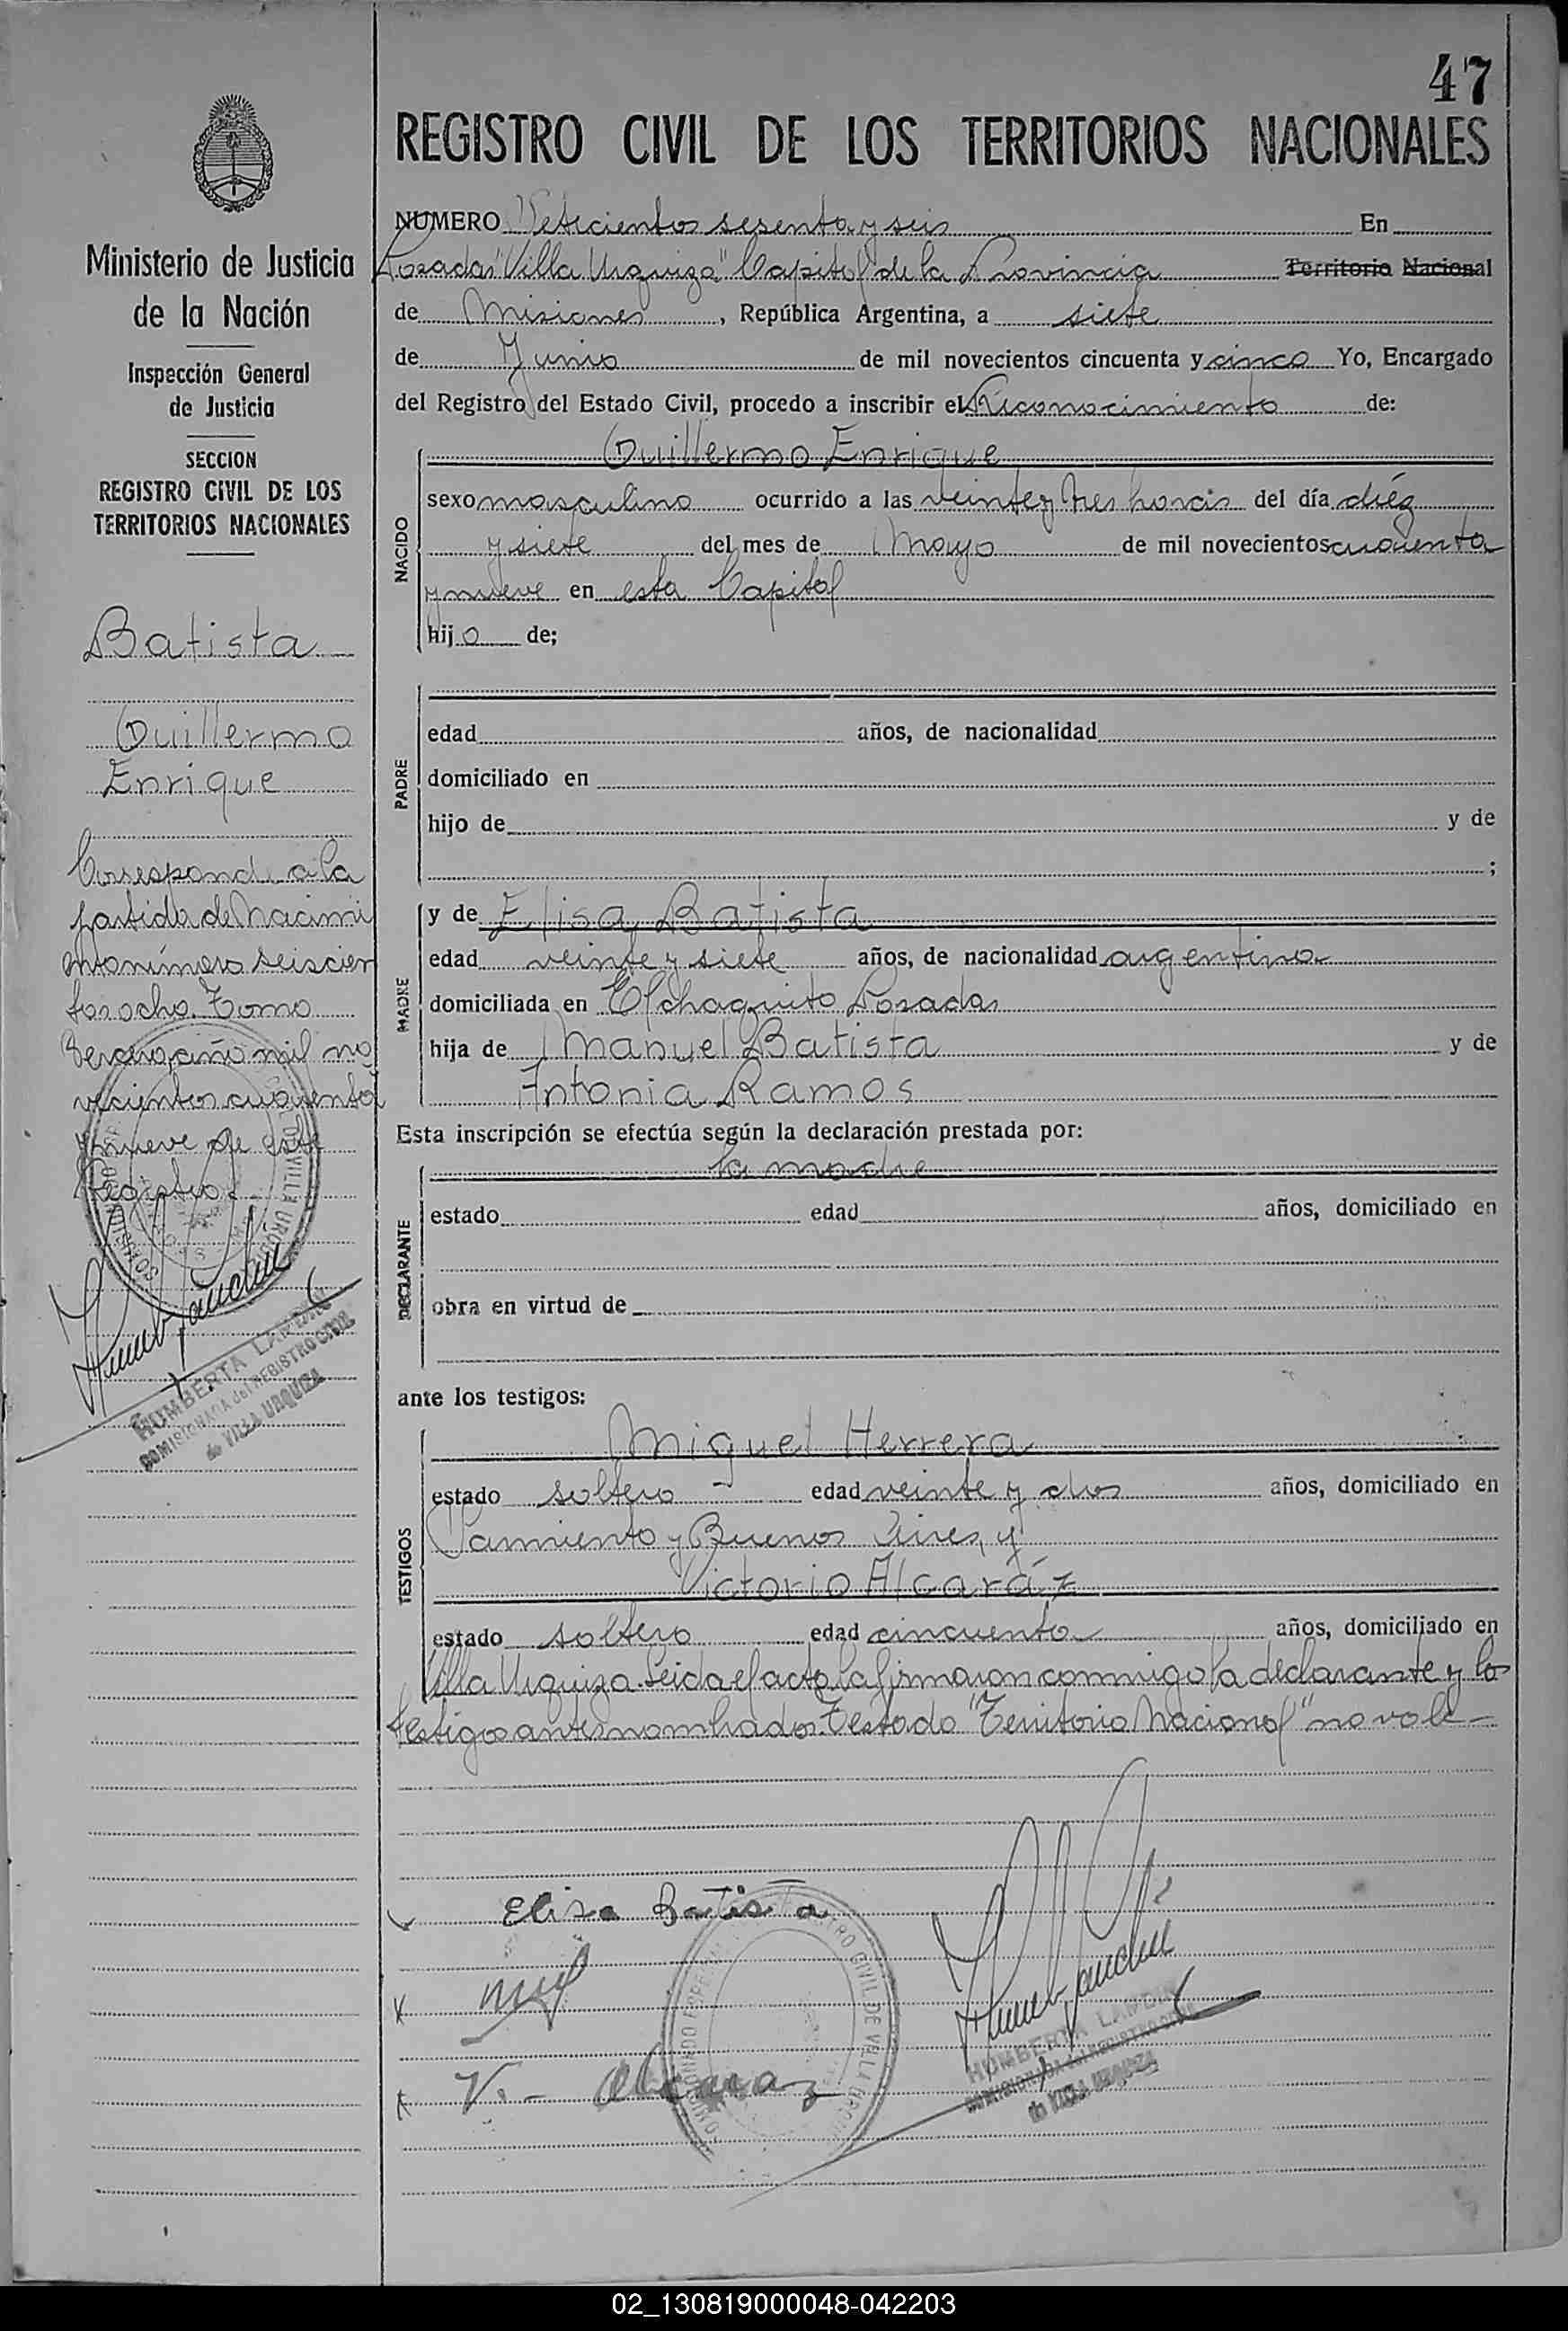 47
REGISTRO CIVIL DE LOS TERRITORIOS NACIONALES
Ministerio de Justicia
de la Nación
Inspección General
de Justicia
SECCION
REGISTRO CIVIL DE LOS
TERRITORIOS NACIONALES
Batista
Guillermo
Enrique
Corresponde a la
partida de Nacimi
ento número seiscien
tos ocho Tomo
Tercero, año mil no
vecientos cuarenta
y nueve de este
Registro.
HUMBERTA
COMISIONADA del REGISTRO CIVIL
de VILLA URQUIZA
NUMERO Setecientos sesenta y seis En
Posadas "Villa Urquiza" Capital de la Provincia Territorio Nacional
de Misiones, República Argentina, a siete
de Junio de mil novecientos cincuenta y cinco Yo, Encargado
del Registro del Estado Civil, procedo a inscribir el Reconocimiento de:
Guillermo Enrique
NACIDO
sexo masculino ocurrido a las veinte y tres horas del día diéz
y siete del mes de Mayo de mil novecientos cuarenta
y nueve en esta Capital
hijo de;
PADRE
edad años, de nacionalidad
domiciliado en
hijo de y de
;
MADRE
y de Elisa Batista
edad veinte y siete años, de nacionalidad argentina
domiciliada en El chaquito Posadas
hija de Manuel Batista y de
Antonia Ramos
Esta inscripción se efectúa según la declaración prestada por:
la madre
DECLARANTE
estado edad años, domiciliado en
obra en virtud de
ante los testigos:
TESTIGOS
Miguel Herrera
estado soltero edad veinte y dos años, domiciliado en
Sarmiento y Buenos Aires, y
Victorio Alcaráz
estado soltero edad cincuenta años, domiciliado en
Villa Urquiza. Leida el acta la firmaron conmigo la declarante y los
testigos antes nombrados. Testado "Territorio Nacional" no vale-
Elisa Batista
V. - Alcaraz
HUMBERTA
COMISIONADA del REGISTRO CIVIL
de VILLA URQUIZA
02_130819000048-042203